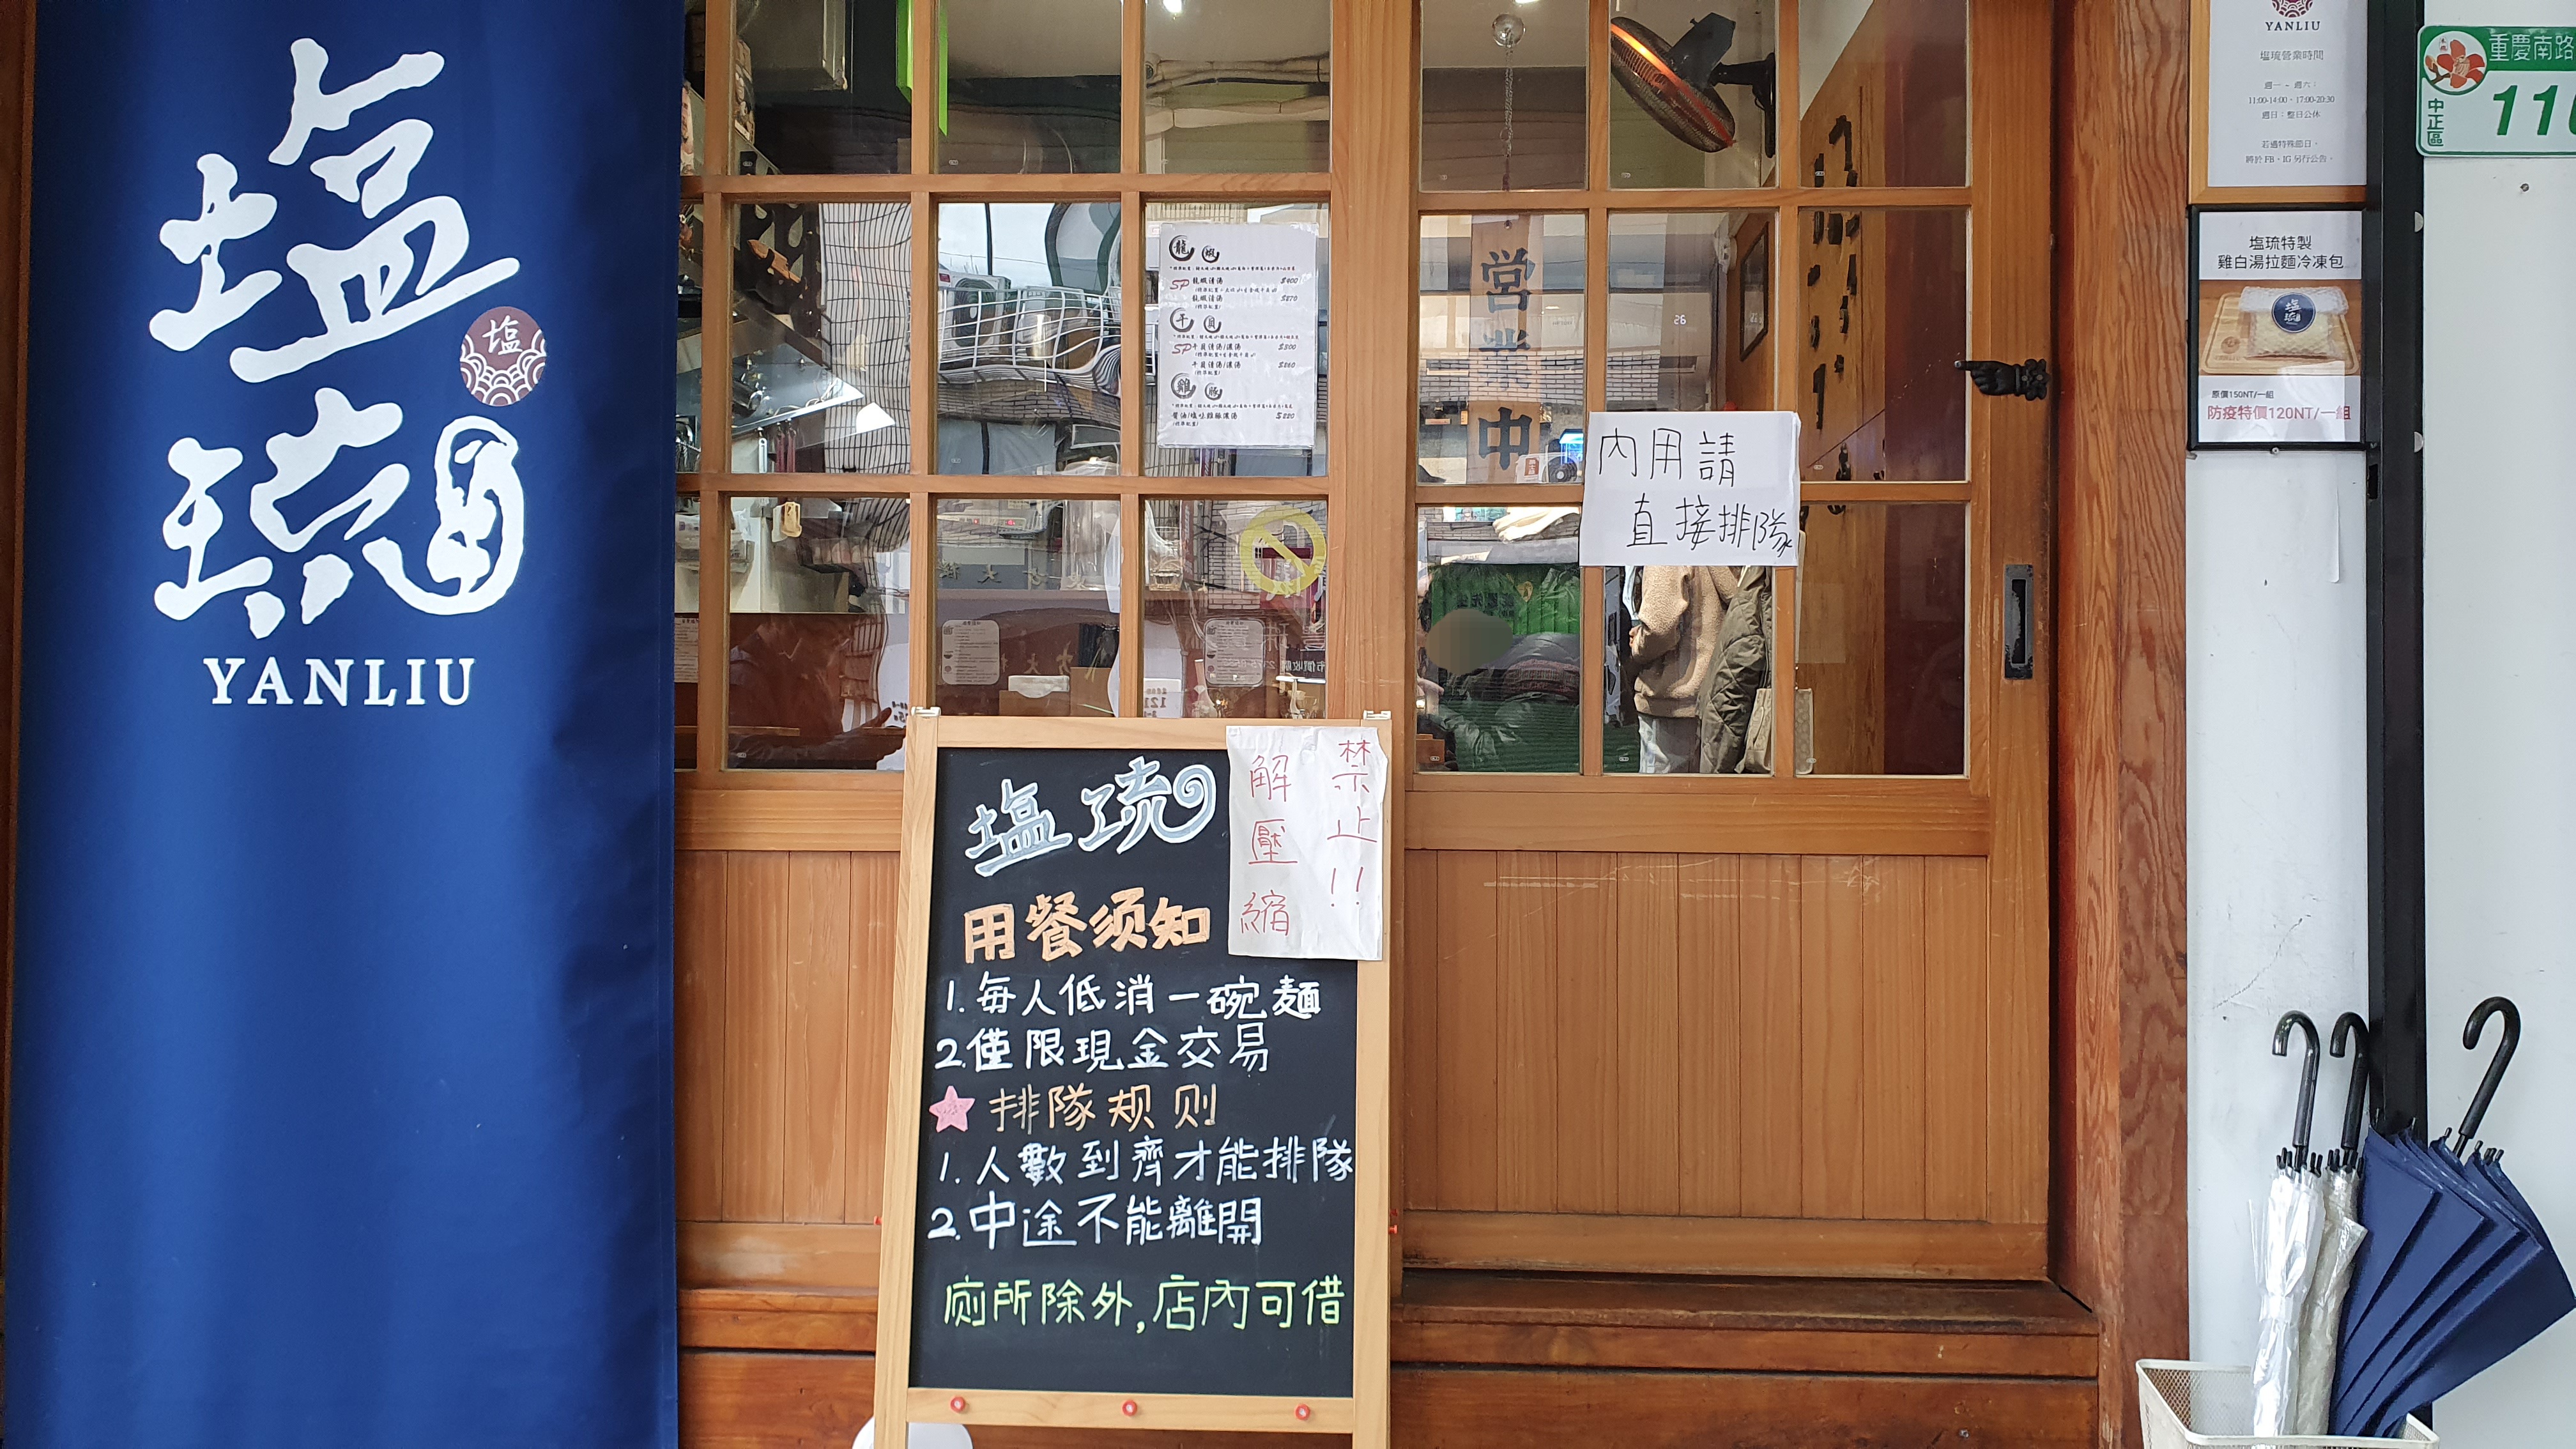 塩琉
塩
YANLIU
龍蝦
SP 龍蝦清湯 $400
龍蝦清湯 $270
干貝
SP 干貝清湯/濃湯 $300
干貝清湯/濃湯 $260
雞豚
醬油/塩味雞豚濃湯 $220
営業中
內用請
直接排隊
禁止!!
解壓縮
塩琉
用餐须知
1.每人低消一碗麵
2.僅限現金交易
排隊规则
1.人數到齊才能排隊
2.中途不能離開
廁所除外,店內可借
YANLIU
塩琉營業時間
週一 - 週六：
11:00-14:00、17:00-20:30
週日：整日公休
若遇特殊節日，
將於 FB、IG 另行公告。
塩琉特製
雞白湯拉麵冷凍包
塩琉
原價150NT/一組
防疫特價120NT/一組
重慶南路
中正區